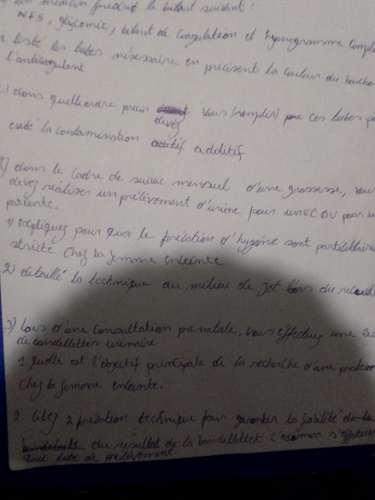 prélèvement le bilan suivant :
NFS, glycémie, bilant de Coagulation et Ionogramme Compl
listé les tubes nécessaire en précisent la couleur du bouchon
l'anticoagulant
2) dans quelle ordre précis devez vous (remplir) pour ces tubes po
evité la contamination additif
dans le Cadre de suivie mensuel d'une grossesse, vous
devez réaliser un prélèvement d'urine pour un ECBU pour un
patiente.
1) expliquez pour quoi le précation d'hygiene sont particulière
stricte chez la femme enceinte
2) détaillé la technique du milieu de jet lors du recueil
3) Lors d'une Consultation prénatale, vous effectuez une le
de bandelettes urinaire
1. quelle est l'objectif principale de la recherche d'une protein
chez la femme enceinte.
2. Citez 2 précation technique pour garantir la fiabilité
du résultat de la bandelettes